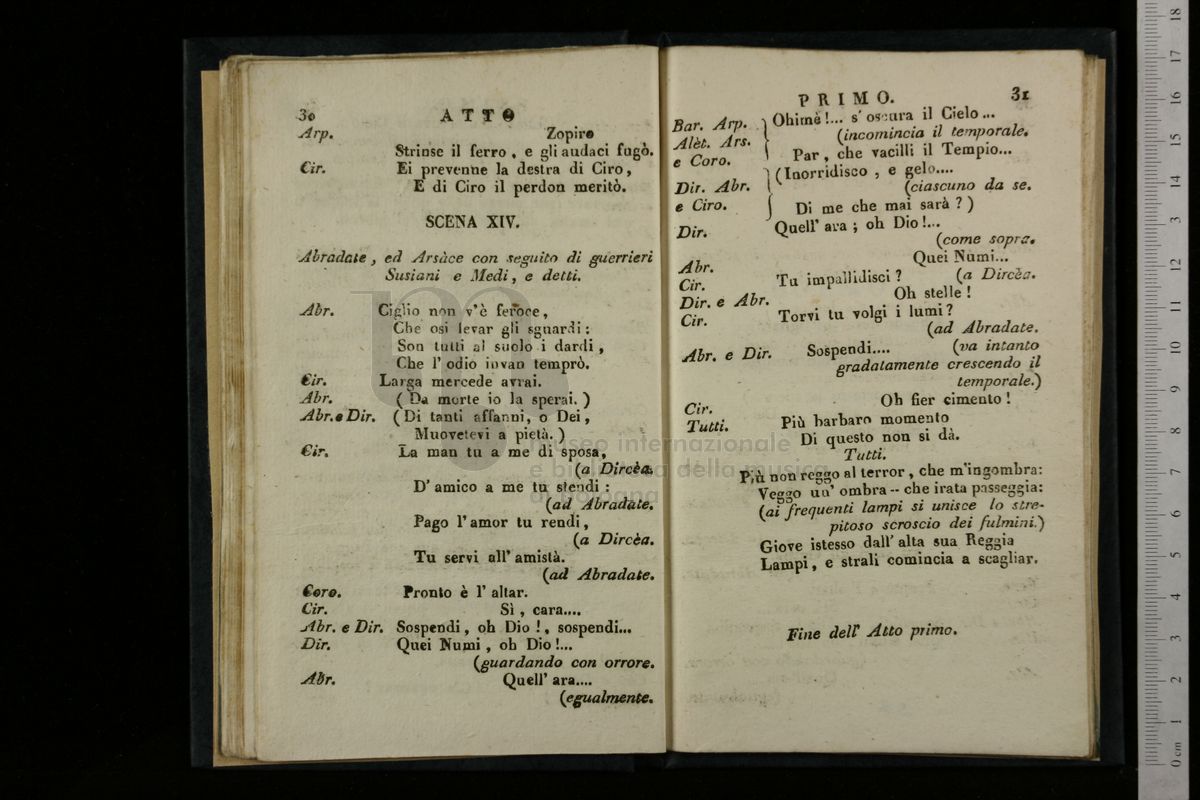 30 ATTO
Arp. Zopiro
Strinse il ferro, e gli audaci fugò.
Cir. Ei prevenne la destra di Ciro,
E di Ciro il perdon meritò.
SCENA XIV.
Abradate, ed Arsàce con seguito di guerrieri
Susiani e Medi, e detti.
Abr. Ciglio non v'è feroce,
Che osi levar gli sguardi:
Son tutti al suolo i dardi,
Che l'odio invan temprò.
Cir. Larga mercede avrai.
Abr. (Da morte io la sperai.)
Abr. e Dir. (Di tanti affanni, o Dei,
Muovetevi a pietà.)
Cir. La man tu a me di sposa,
(a Dircèa.
D'amico a me tu stendi:
(ad Abradate.
Pago l'amor tu rendi,
(a Dircèa.
Tu servi all'amistà.
(ad Abradate.
Coro. Pronto è l'altar.
Cir. Sì, cara....
Abr. e Dir. Sospendi, oh Dio!, sospendi...
Dir. Quei Numi, oh Dio!...
(guardando con orrore.
Abr. Quell'ara....
(egualmente.
PRIMO. 31
Bar. Arp. Ohimè!... s'oscura il Cielo...
Alèt. Ars. (incomincia il temporale.
e Coro. Par, che vacilli il Tempio...
Dir. Abr. (Inorridisco, e gelo....
(ciascuno da se.
e Ciro. Di me che mai sarà?)
Dir. Quell'ara; oh Dio!...
(come sopra.
Abr. Quei Numi...
Cir. Tu impallidisci? (a Dircèa.
Dir. e Abr. Oh stelle!
Cir. Torvi tu volgi i lumi?
(ad Abradate.
Abr. e Dir. Sospendi.... (va intanto
gradatamente crescendo il
temporale.)
Cir. Oh fier cimento!
Tutti. Più barbaro momento
Di questo non si dà.
Tutti.
Più non reggo al terror, che m'ingombra:
Veggo un'ombra -- che irata passeggia:
(ai frequenti lampi si unisce lo stre-
pitoso scroscio dei fulmini.)
Giove istesso dall'alta sua Reggia
Lampi, e strali comincia a scagliar.
Fine dell'Atto primo.
museo internazionale
e biblioteca della musica
di bologna
0 cm 1 2 3 4 5 6 7 8 9 10 11 12 13 14 15 16 17 18